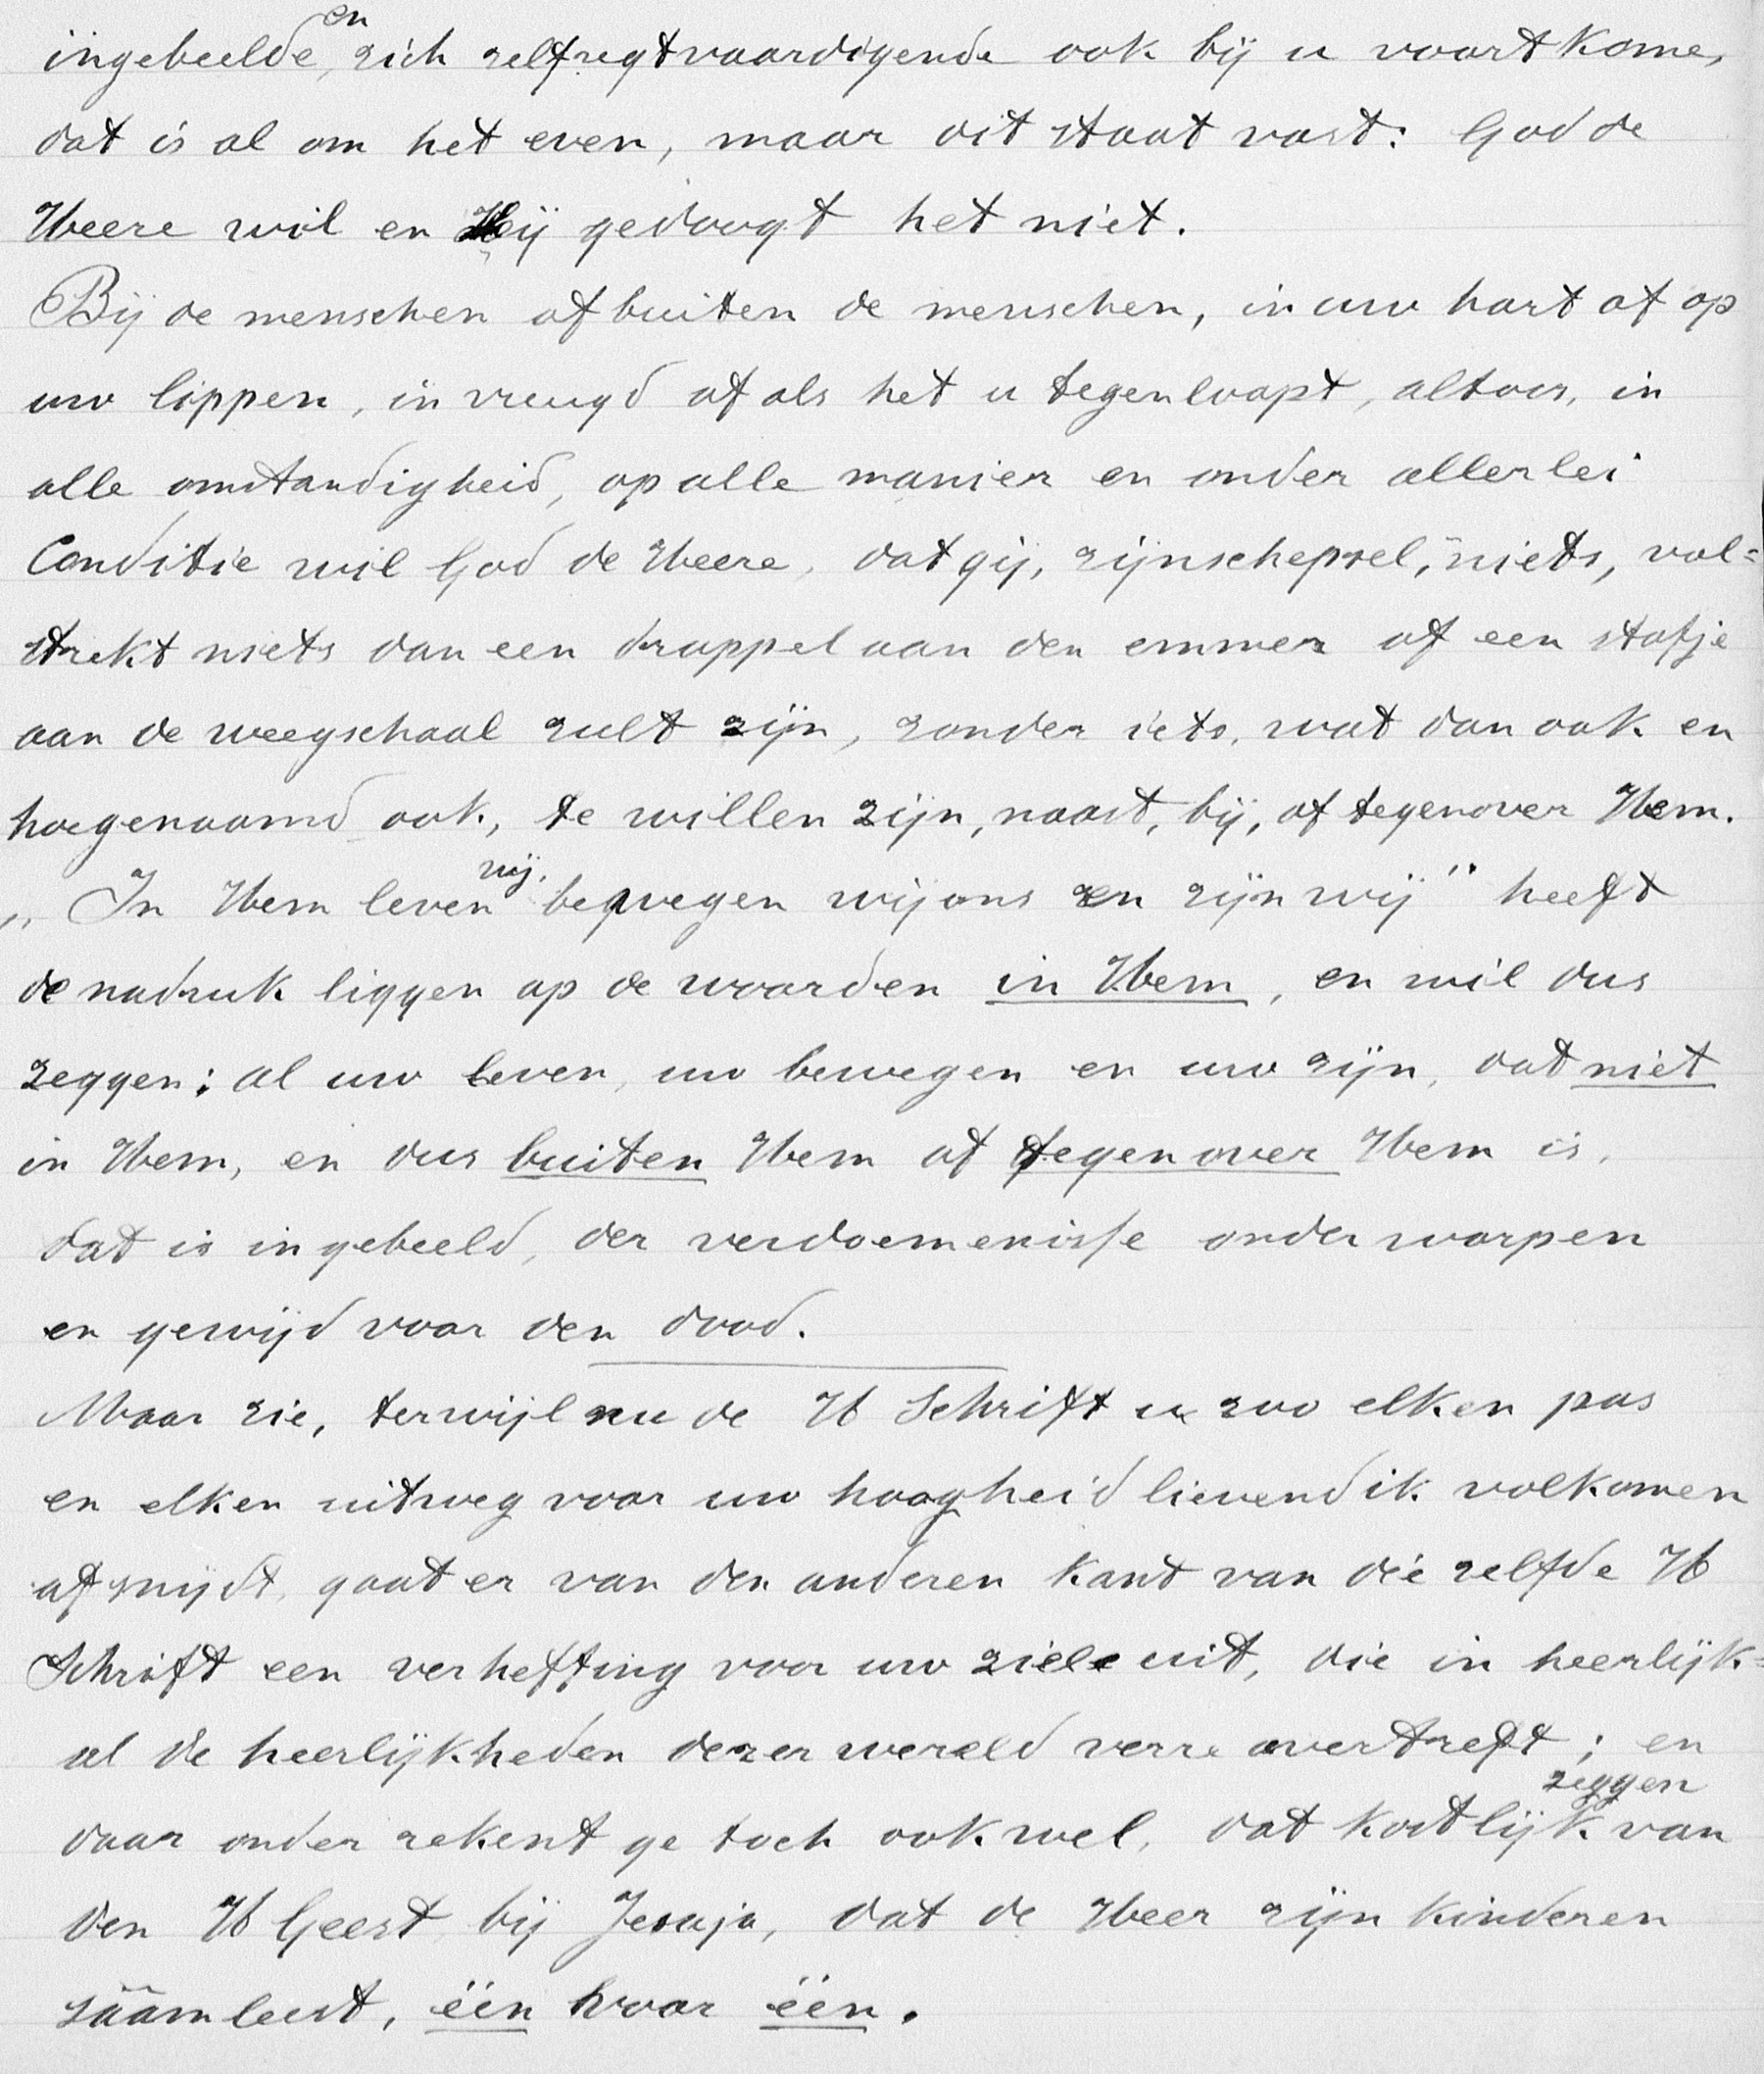 ingebeelde en zich zelfregtvaardigende ook bij u voortkome,
dat is al om het even, maar dit staat vast: God de
Heere wil en Hij gedoogt het niet.
Bij de menschen of buiten de menschen, in uw hart of op
uw lippen, in vreugd of als het u tegenloopt, altoos, in
alle omstandigheid, op alle manier en onder allerlei
Conditie wil God de Heere, dat gij, zijn schepsel, niets, vol=
strekt niets dan een droppel aan den emmer of een stofje
aan de weegschaal zult zijn, zonder iets, wat dan ook en
hoegenaamd ook, te willen zijn, naast, bij, of tegenover Hem.
„In Hem leven wij, bewegen wij ons en zijn wij" heeft
de nadruk liggen op de woorden in Hem, en wil dus
zeggen: al uw leven, uw bewegen en uw zijn, dat niet
in Hem, en dus buiten Hem of tegenover Hem is,
dat is ingebeeld, der verdoemenisse onderworpen
en gewijd voor den dood.
Maar zie, terwijl nu de H Schrift u zoo elken pas
en elken uitweg voor uw hoogheid lievend ik volkomen
afsnijdt, gaat er van den anderen kant van die zelfde H
Schrift een verheffing voor uw ziele uit, die in heerlijk=
al de heerlijkheden dezer wereld verre overtreft; en
daar onder rekent ge toch ook wel, dat kostlijk zeggen van
den H Geest bij Jesaja, dat de Heer zijn kinderen
säämleest, één voor één.